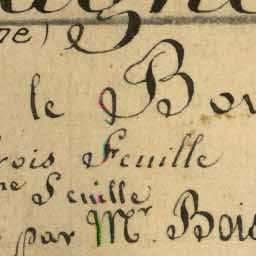 ne)
le Bo
rois Feuille
me Feuille
par Mr. Bois